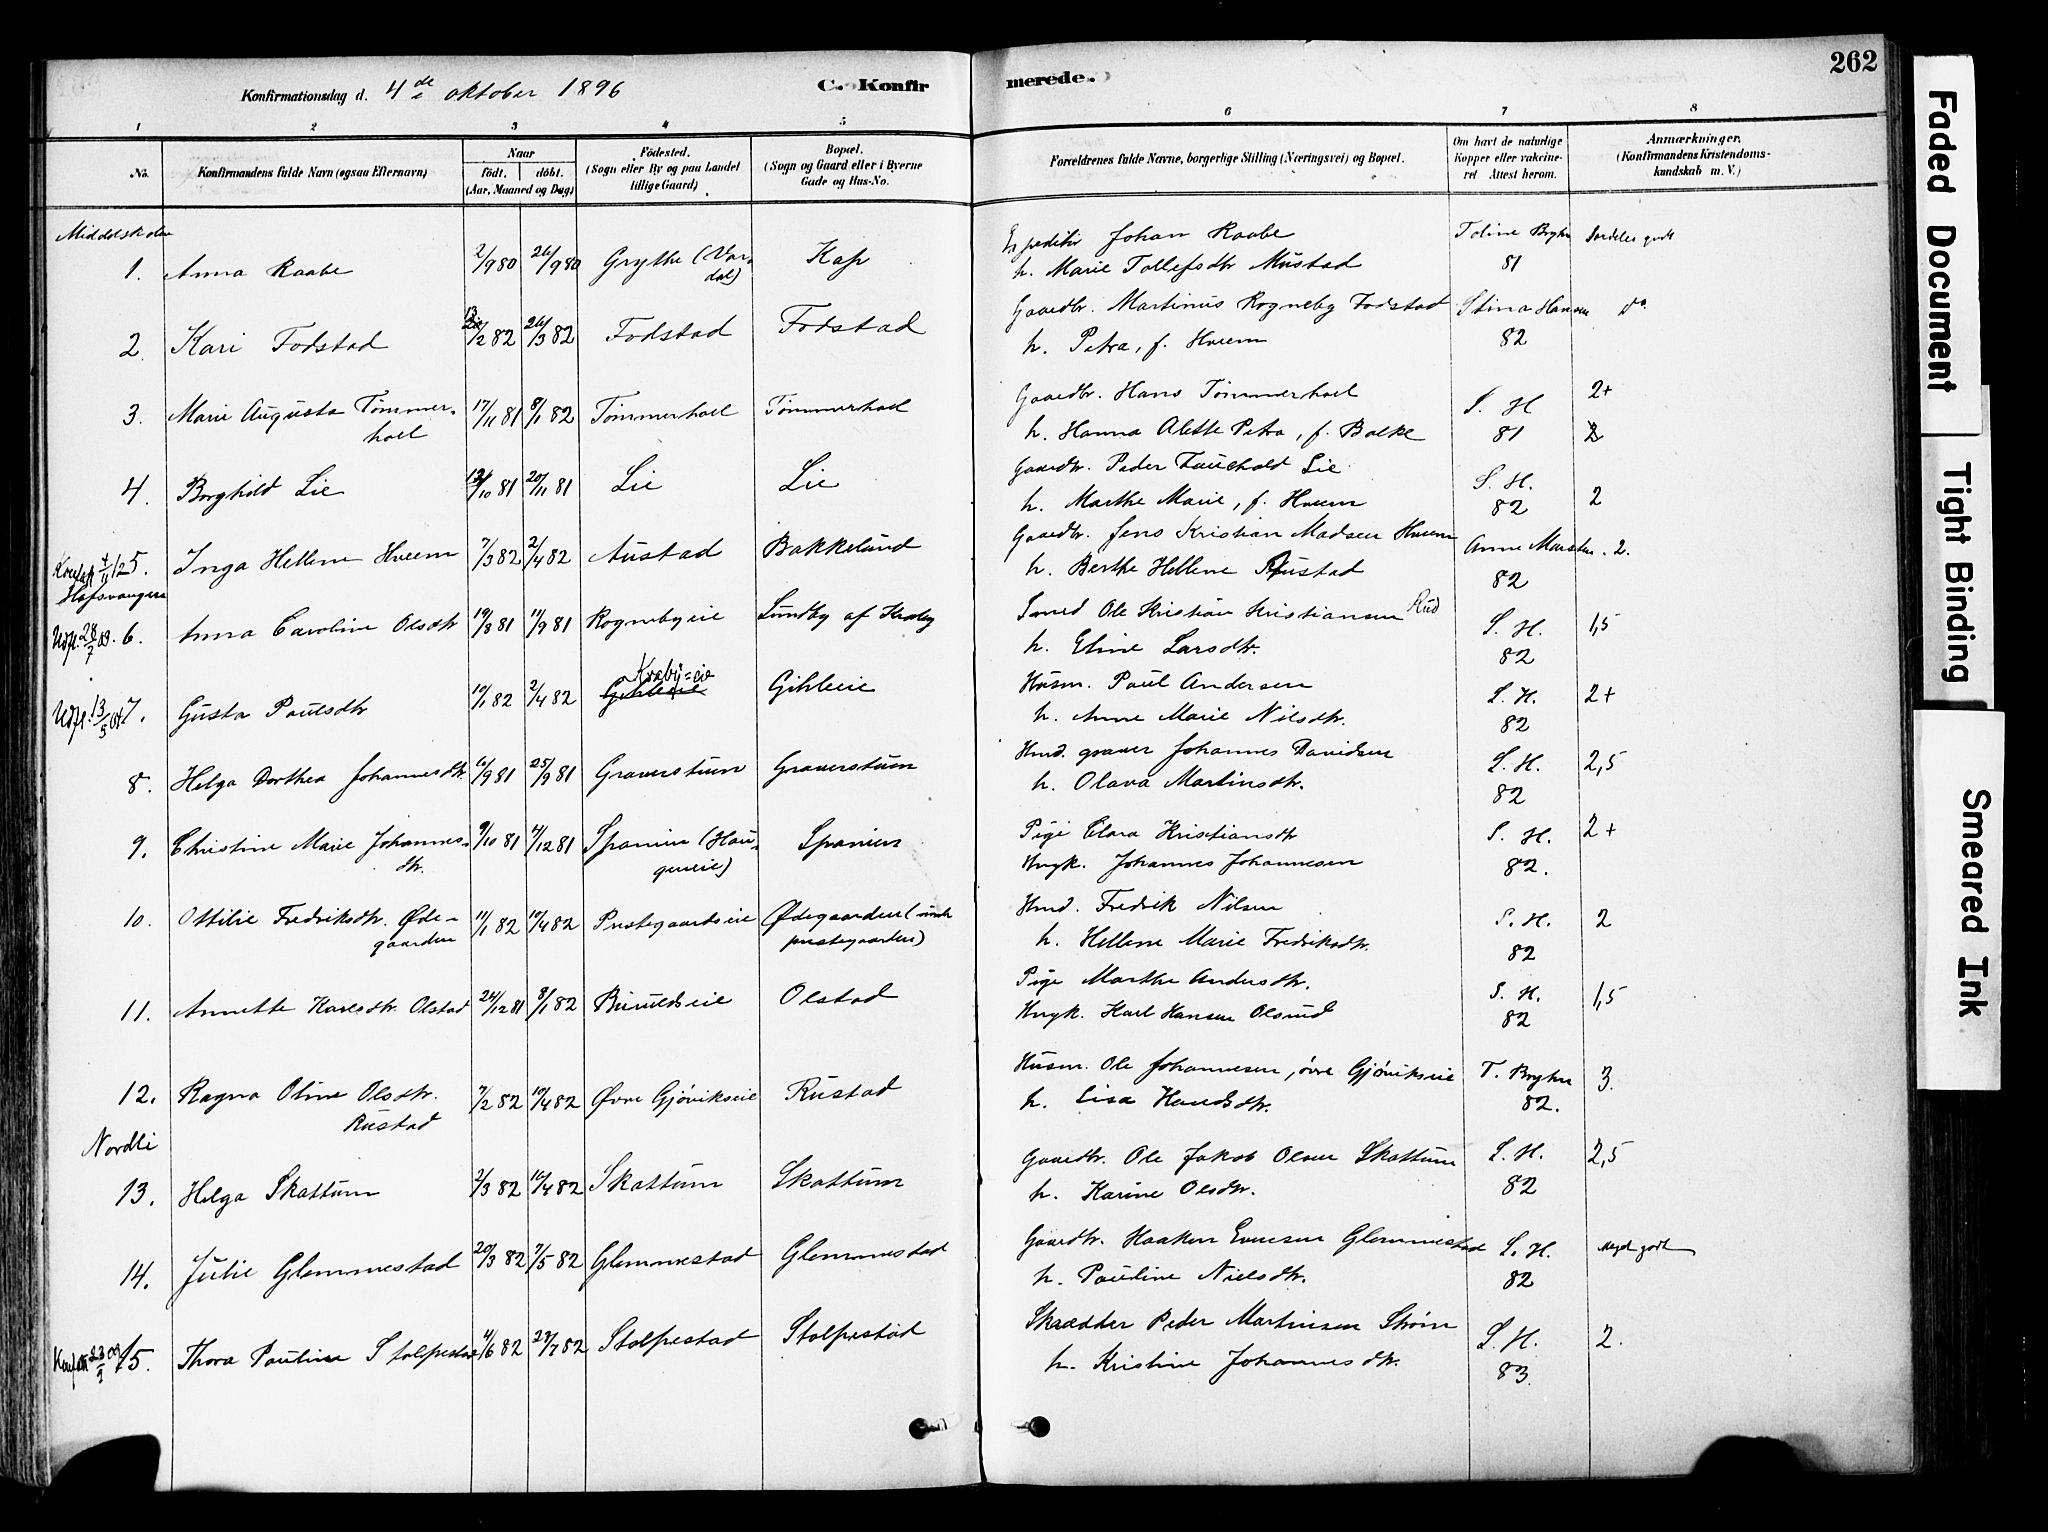 262
Konfirmationsdag d. 4de oktober 1896
C. Konfirmerede.
1 2 3 4 5 6 7 8
No.
Konfirmandens fulde Navn (ogsaa Efternavn)
Naar
födt. döbt.
(Aar, Maaned og Dag)
Födested.
(Sogn eller By og paa Landet tillige Gaard)
Bopæl.
(Sogn og Gaard eller i Byerne Gade og Hus-No.
Forældrenes fulde Navne, borgerlige Stilling (Næringsvei) og Bopæl.
Om havt de naturlige Kopper eller vakcineret. Attest herom.
Anmærkninger.
(Konfirmandens Kristendomskundskab m. V.)
Middelskolen
1. Anna Raabe 2/9 80 26/9 80 Grythe (Vardal) Kap Expeditør Johan Raabe Toline Bryhn Særdeles godt
h. Marie Tollefsdtr Mustad 81
2. Kari Fodstad 13/2 82 26/3 82 Fodstad Fodstad Gaardbr. Martinus Rogneby Fodstad Stina Hansen do
h. Petra, f. Hveem 82
3. Marie Augusta Tømmerhoel 17/11 81 8/1 82 Tømmerhoel Tømmerhoel Gaardbr. Hans Tømmerhoel S. H. 2+
h. Hanna Alette Petra, f. Balke 81
4. Borghild Lie /10 81 20/11 81 Lie Lie Gaardbr. Peder Fauchald Lie S. H.
h. Marthe Marie, f. Hveem 82 2
5. Inga Hellene Hveem 7/3 82 2/4 82 Austad Bakkelund Gaardbr. Jens Kristian Madsen Hveem Anne Marthe 2.
h. Berthe Hellene Austad 82
Udfl. 28/7 03. 6. Anna Caroline Olsdtr 19/8 81 11/9 81 Rognebyeie Lundby af Kraby Smed Ole Kristian Kristiansen Rud S. H. 1,5
h. Eline Larsdtr. 82
Udfl. 13/5 04 7. Gusta Paulsdtr 10/1 82 2/4 82 Kraby=eie Gihleeie Gihleeie Husm. Paul Andersen S. H. 2+
h. Anne Marie Nilsdtr. 82
8. Helga Dorthea Johannesdtr 6/9 81 25/9 81 Graverstuen Graverstuen Hmd. graver Johannes Davidsen S. H. 2,5
h. Olava Martinsdtr. 82
9. Christine Marie Johannesdtr. 9/10 81 4/12 81 Spanien (Haugeneie) Spanien Pige Clara Kristiansdtr S. H. 2+
Ungk. Johannes Johannesen 82.
10. Ottilie Fredriksdtr. Ødegaarden 11/1 82 10/4 82 Prestegaardseie Ødegaarden (under prestegaarden) Hmd. Fredrik Nilsen S. H. 2
h. Hellene Marie Fredriksdtr. 82
11. Annette Karlsdtr. Olstad 26/12 81 8/1 82 Olstad Pige Marthe Andersdtr. S. H. 1,5
Ungk. Karl Hansen Olsrud 82
12. Ragna Oline Olsdtr. Rustad 7/2 82 10/4 82 Øvre Gjøvikseie Rustad Husm. Ole Johannesen, øvre Gjøvikseie T. Bryhn 3.
h. Lisa Hansdtr. 82.
Nordli
13. Helga Skattum 2/3 82 10/4 82 Skattum Skattum Gaardbr. Ole Jakob Olsen Skattum S. H. 2,5
h. Karine Olsdtr. 82
14. Julie Glemmestad 20/3 82 7/5 82 Glemmestad Glemmestad Gaardbr. Haaken Evensen Glemmestad S. H. Meget godt
h. Pauline Nielsdtr. 82
15. Thora Pauline Stolpestad 4/6 82 23/7 82 Stolpestad Stolpestad Skrædder Peder Martinsen Strøm S. H. 2.
h. Kristine Johannesdtr. 83
Faded Document
Tight Binding
Smeared Ink